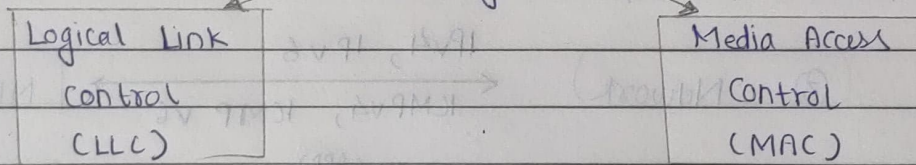 Logical Link
Control
(LLC)
Media Access
Control
(MAC)